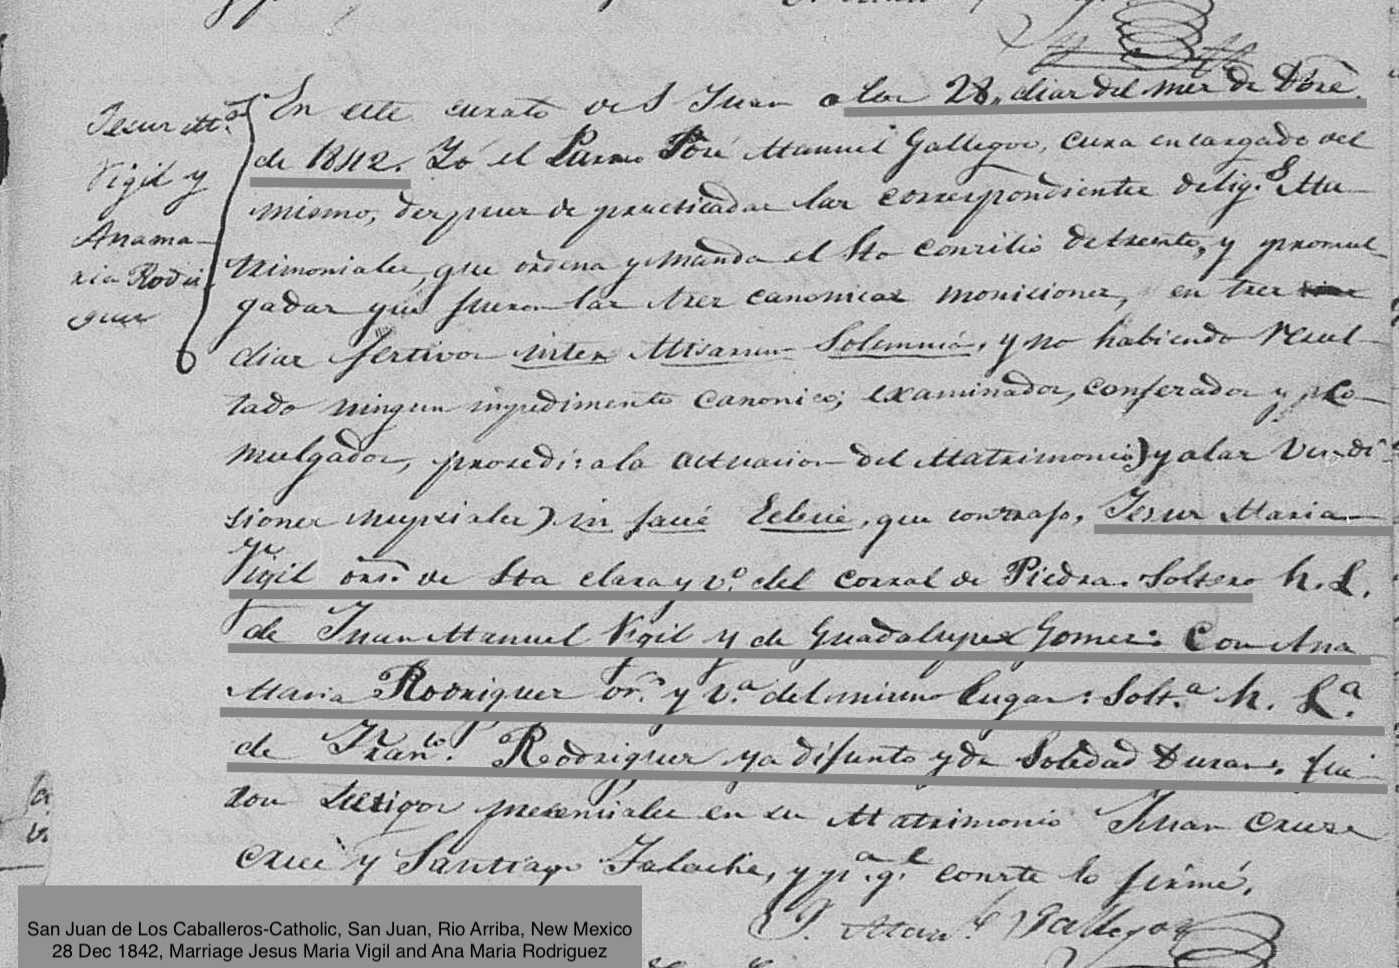 Jesus Ma.
Vigil y
Anama-
ria Rodri-
gues
En este curato de S Juan a los 28, dias del mes de Dbre.
de 1842. Yó el Presvo José Manuel Gallegos, cura encargado del
mismo, despues de practicadas las correspondientes delig.s Ma-
trimoniales, que ordena y manda el Sto consilio de trento, y promul-
gadas que fueron las tres canonicas moniciones, en tres
dias festivos inter Misarum Solemnia, y no habiendo resul-
tado ningun inpedimento canonico; examinados, confesados y pro-
mulgados, prosedi: a la actuacion del Matrimonio) y a las Vendi-
siones nupsiales) in facié Eclecie, que contrajo, Jesus Maria
Vigil orn. de Sta clara y v.o del corral de Piedra. Soltero h. L.
de Juan Manuel Vigil y de Guadalupe Gomes: Con Ana
Maria Rodrigues or.a y v.a del mismo lugar: Solt.a h. L.a
de Fran.co Rodrigues ya difunto y de Soledad Duran. fue-
ron testigos presensiales en su Matrimonio Juan
y Santiago y p.a q.e conste lo firmé.
J. Man.l Gallegos
San Juan de Los Caballeros-Catholic, San Juan, Rio Arriba, New Mexico
28 Dec 1842, Marriage Jesus Maria Vigil and Ana Maria Rodriguez